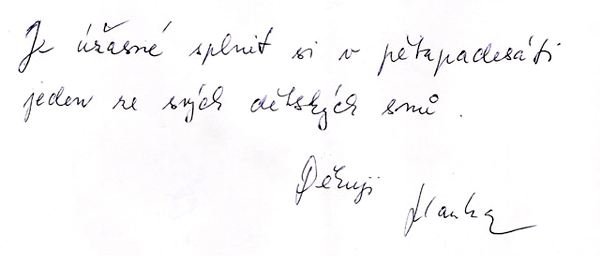 Je úžasné splnit si v pětapadesáti
jeden ze svých dětských snů.
Děkuji
Hanka